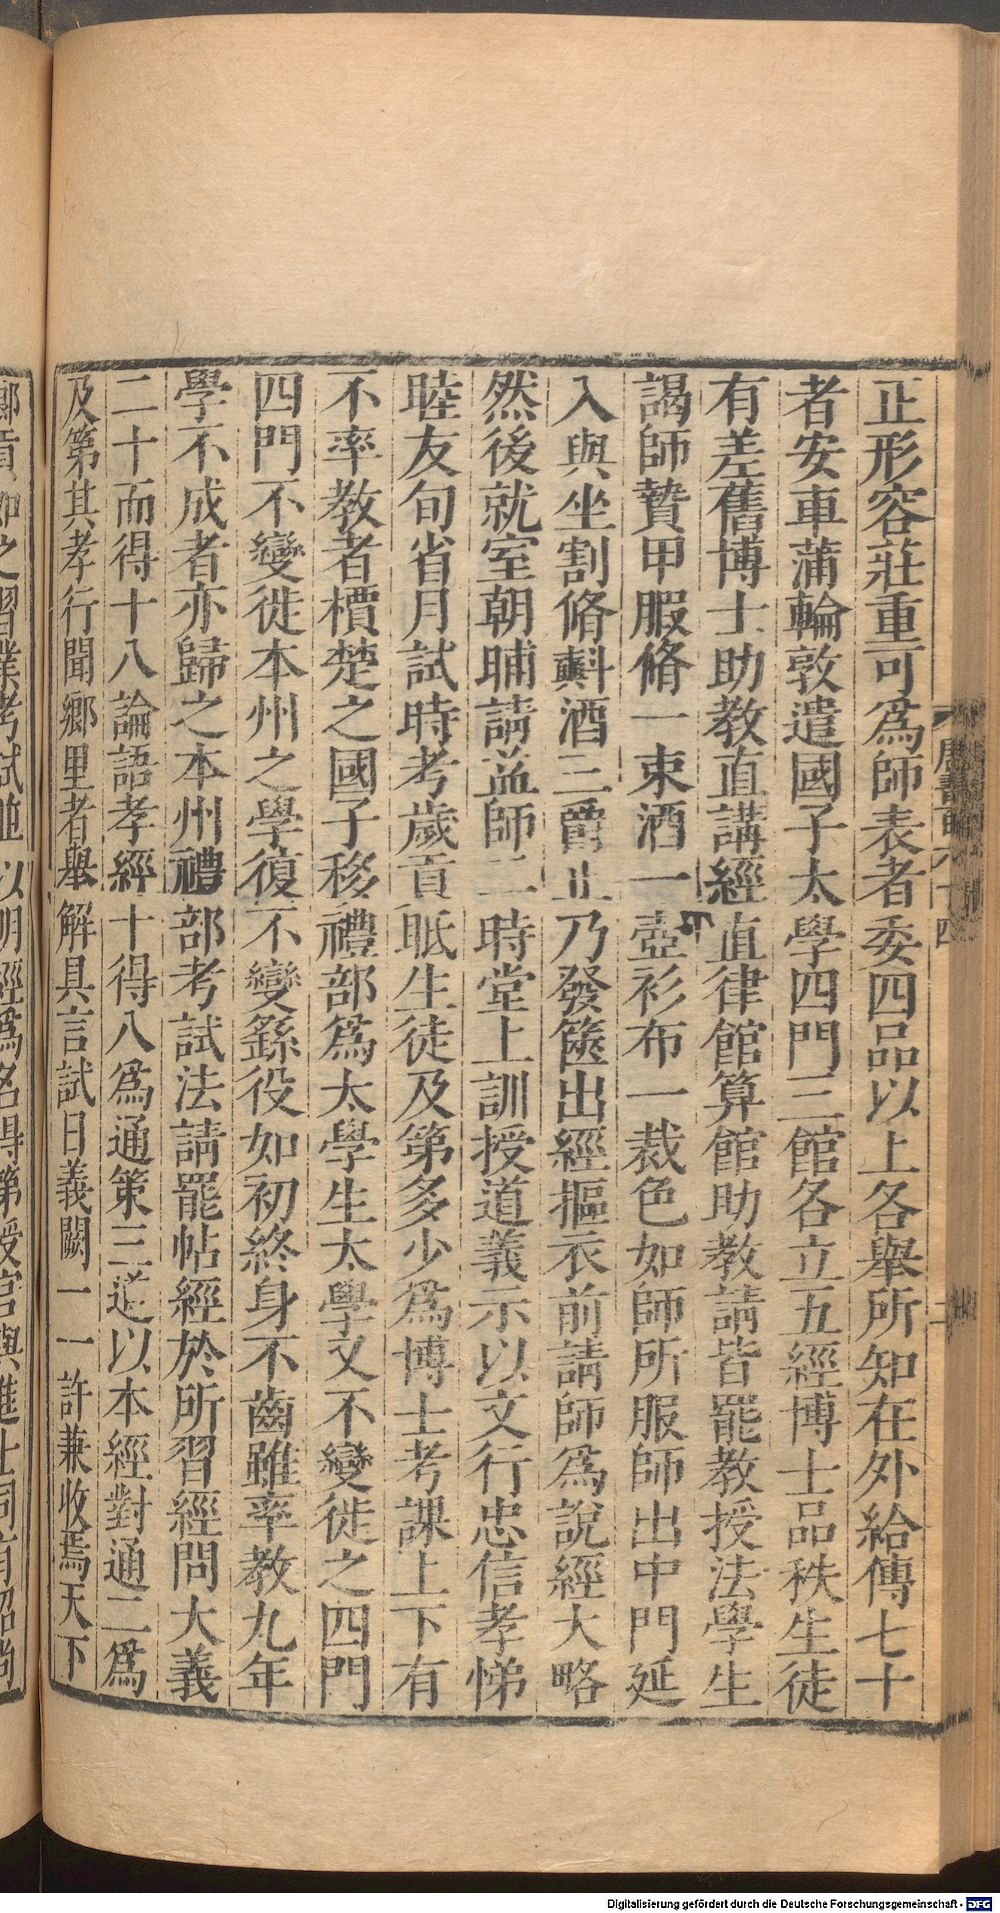 正形容莊重可爲師表者委四品以上各舉所知在外給傳七十
者安車蒲輪敦遣國子太學四門三館各立五經博士品秩生徒
有差舊博士助教直講經直律館算館助教請皆罷教授法學生
謁師贄甲服脩一束酒一壺衫布一裁色如師所服師出中門延
入與坐割脩斟酒三爵止乃發篋出經摳衣前請師爲說經大略
然後就室朝晡請益師二時堂上訓授道義示以文行忠信孝悌
睦友旬省月試時考歲貢眡生徒及第多少爲博士考課上下有
不率教者檟楚之國子移禮部爲太學生太學又不變徙之四門
四門不變徙本州之學復不變繇役如初終身不齒雖率教九年
學不成者亦歸之本州禮部考試法請罷帖經於所習經問大義
二十而得十八論語孝經十得八爲通策三道以本經對通二爲
及第其孝行聞鄉里者舉解具言試日義闕一一許兼收焉天下
鄉貢如之習業考試並以明經爲名得第授官與進士同有詔尚
Digitalisierung gefördert durch die Deutsche Forschungsgemeinschaft - DFG